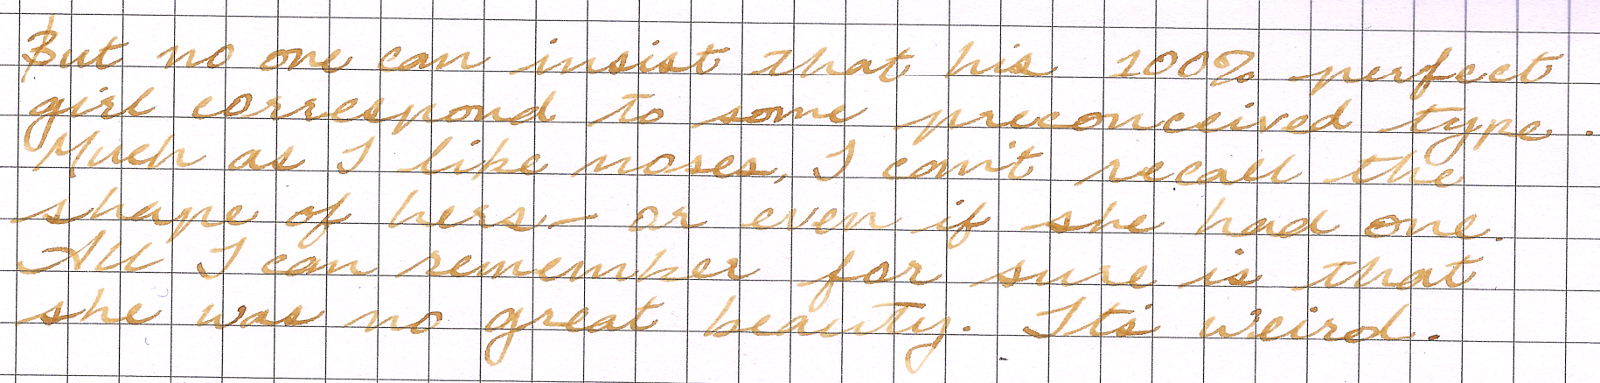 But no one can insist that his 100% perfect
girl correspond to some preconceived type.
Much as I like noses, I can't recall the
shape of hers - or even if she had one.
All I can remember for sure is that
she was no great beauty. It's weird.